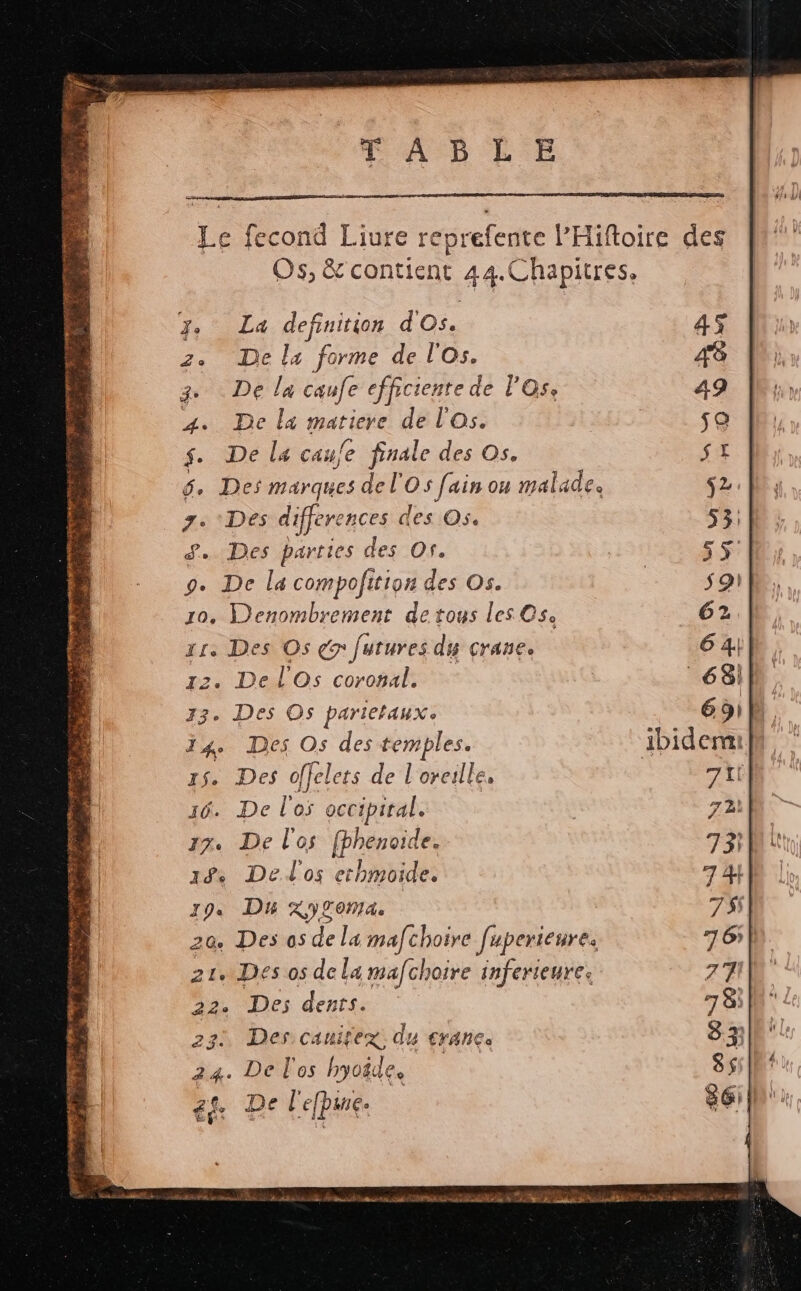 TABLE
Le ſecond Liure repreſente l'Hiſtoire des
Os, & contient 44. Chapitres.
1. La definition d'Os. 45
2. De la forme de l'Os. 48
3. De la cauſe efficiente de l'Os. 49
4. De la matiere de l'Os. 50
5. De la cauſe finale des Os. 51
6. Des marques de l'Os ſain ou malade. 52
7. Des differences des Os. 53
8. Des parties des Os. 55
9. De la compoſition des Os. 59
10. Denombrement de tous les Os. 62
11. Des Os & ſutures du crane. 64
12. De l'Os coronal. 68
13. Des Os parietaux. 69
14. Des Os des temples. ibidem
15. Des oſſelets de l'oreille. 71
16. De l'os occipital. 72
17. De l'os ſphenoide. 73
18. De l'os ethmoide. 74
19. Du zygoma. 75
20. Des os de la maſchoire ſuperieure. 76
21. Des os de la maſchoire inferieure. 77
22. Des dents. 78
23. Des cauitez du crane. 83
24. De l'os hyoide. 85
25. De l'eſpine. 86